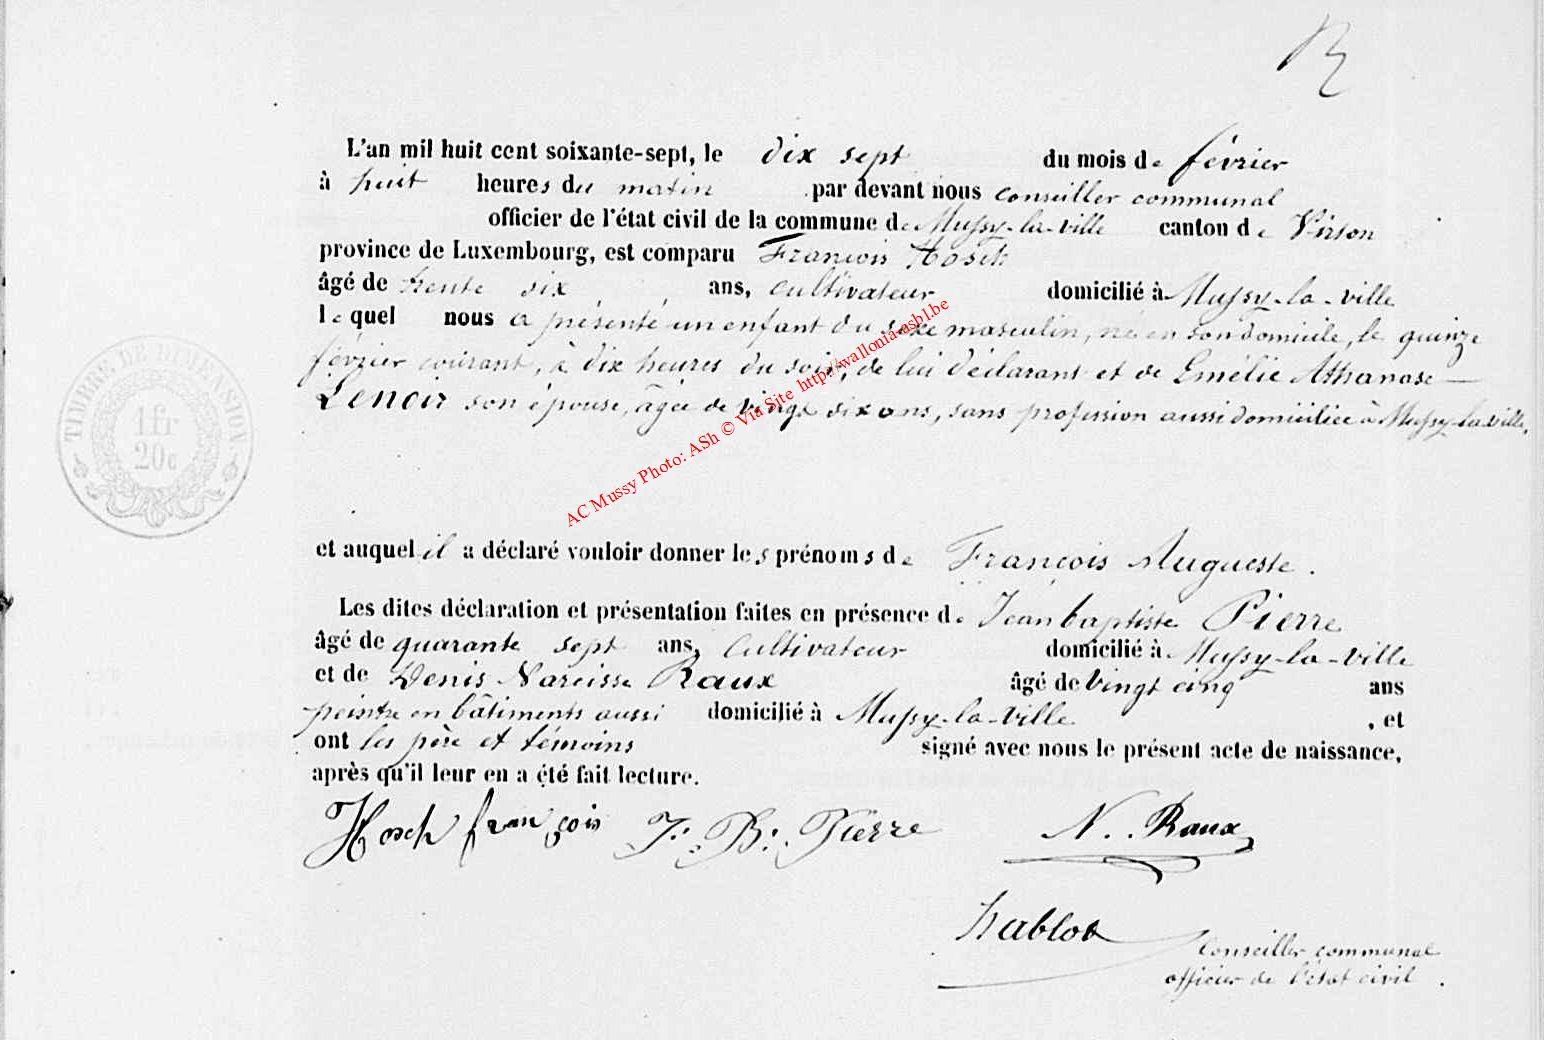 L'an mil huit cent soixante-sept, le dix sept du mois de février
à huit heures du matin par devant nous conseiller communal
officier de l'état civil de la commune de Mussy-la-ville canton de Virton
province de Luxembourg, est comparu François Hosch
âgé de trente six ans, cultivateur domicilié à Mussy-la-ville
lequel nous a présenté un enfant du sexe masculin, né en son domicile, le quinze
février courant, à dix heures du soir, de lui déclarant et de Emélie Athanase
Lenoir son épouse, âgée de vingt six ans, sans profession aussi domiciliée à Mussy-la-ville.
TIMBRE DE DIMENSION
1 fr
20 c
AC Mussy Photo: ASh © Via Site http://wallonia-asbl.be
et auquel il a déclaré vouloir donner les prénoms de François Augueste.
Les dites déclaration et présentation faites en présence de Jean baptiste Pierre
âgé de quarante sept ans, Cultivateur domicilié à Mussy-la-ville
et de Denis Narcisse Raux âgé de vingt cinq ans
peintre en bâtiments aussi domicilié à Mussy-la-Ville , et
ont les père et témoins signé avec nous le présent acte de naissance,
après qu'il leur en a été fait lecture.
Hosch françois J. B. Pierre N. Raux
hablot
Conseiller communal
officier de l'état civil.